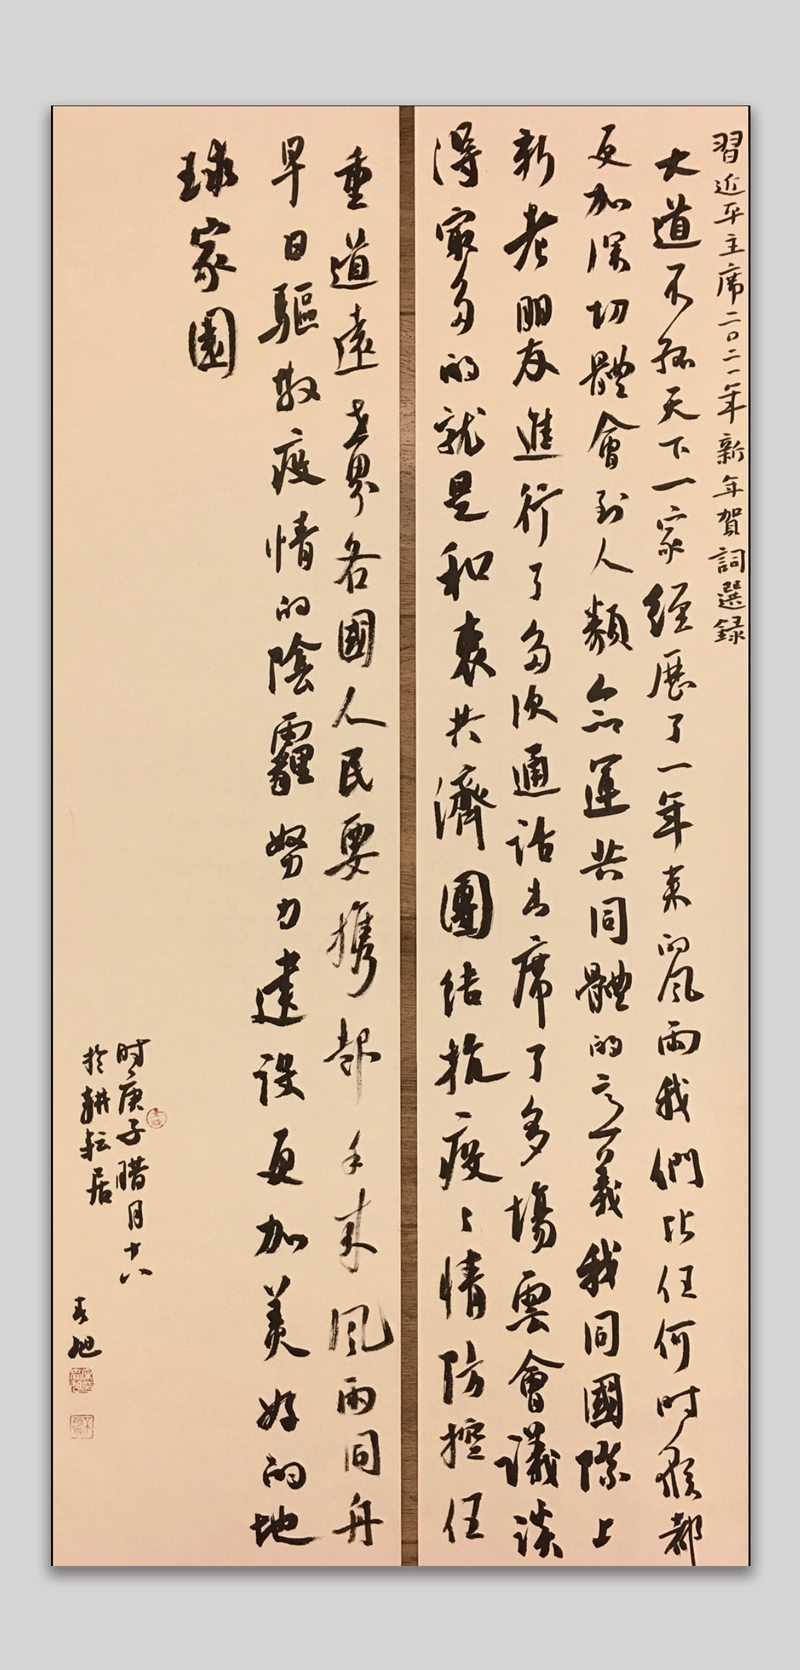 習近平主席二〇二一年新年賀詞選録
大道不孤天下一家經歷了一年來的風雨我們比任何時候都
更加深切體會到人類命運共同體的意義我同國際上
新老朋友進行了多次通話出席了多場雲會議談
得最多的就是和衷共濟團結抗疫〻情防控任
重道遠世界各國人民要攜起手來風雨同舟
早日驅散疫情的陰霾努力建设更加美好的地
球家園
时庚子腊月十八
於耕耘居